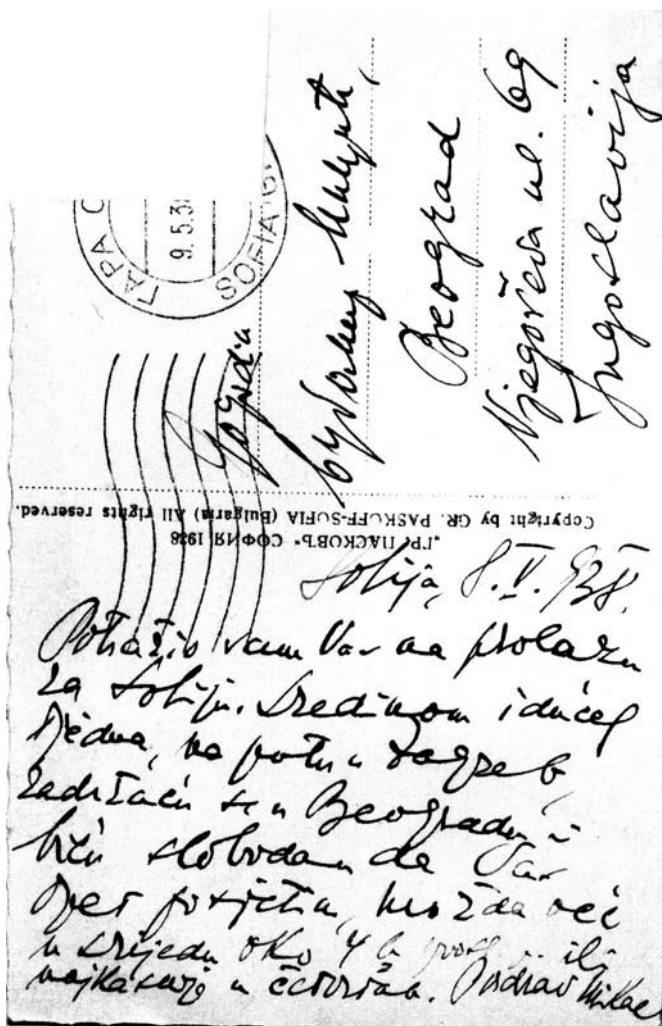 ГАРА
9.5.3
SOFIA
Beograd
Njegoševa ul. 69
Jugoslavija
Copyright by GR. PASKOFF-SOFIA (Bulgaria) All rights reserved.
„ГР. ПАСКОВЪ“ СОФИЯ 1938
Sofija, 8.V.938.
Potražio sam Vas na prolazu
za Sofiju. Sredinom idućeg
tjedna, na putu u Zagreb,
zadržaću se u Beogradu i
biću slobodan da Vas
opet posjetim, možda već
u srijedu oko 4 h ili
najkasnije u četvrtak. Pozdrav